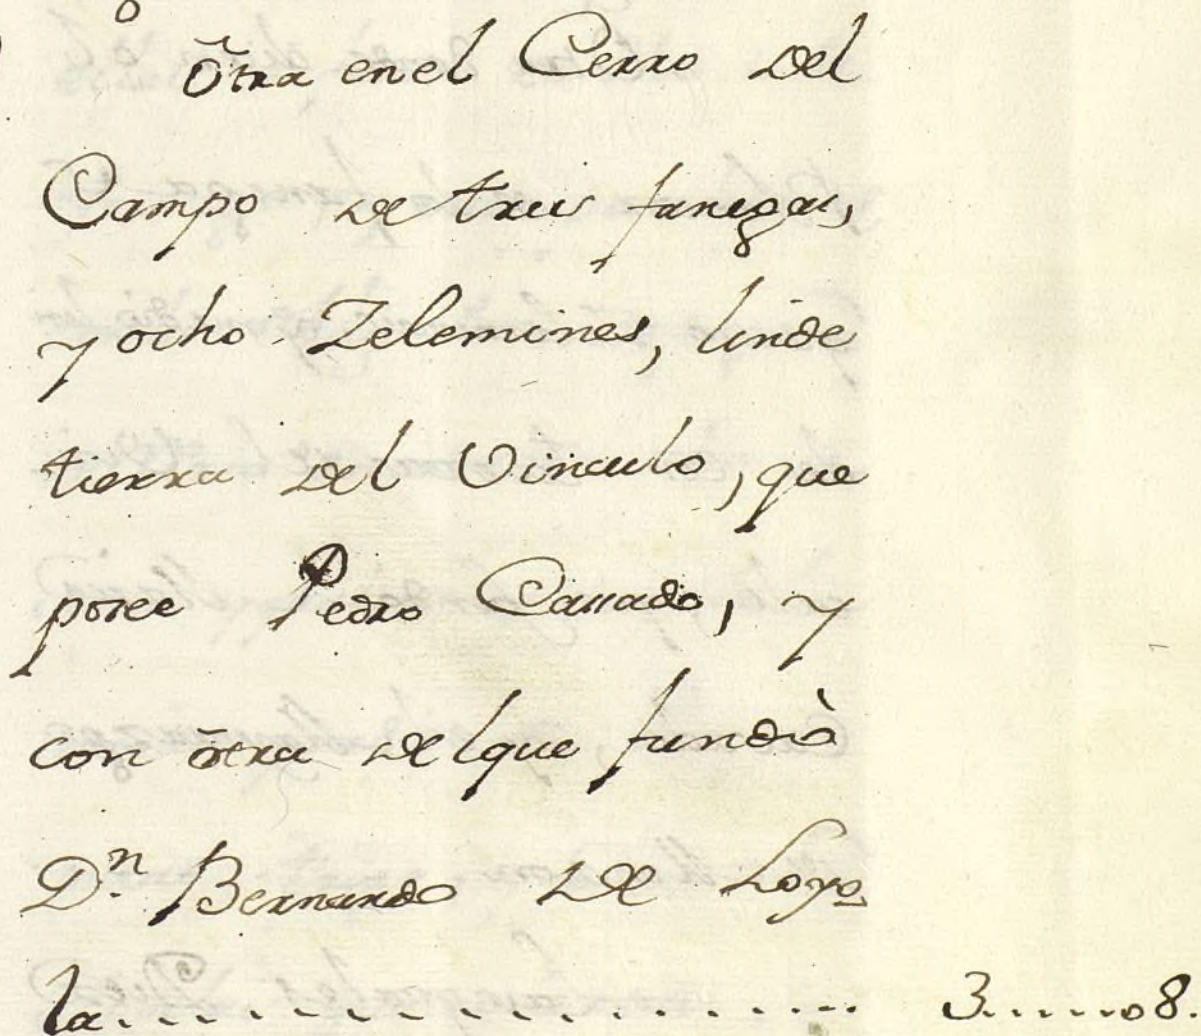 õtra en el Cerro del
Campo de tres fanegas,
y ocho Zelemines, linde
tierra del Vinculo, que
posee Pedro Casado, y
con õtra del que fundò
D.n Bernardo de Loyo
la. . . . . . . . . . . . . . . . . 3.....08.